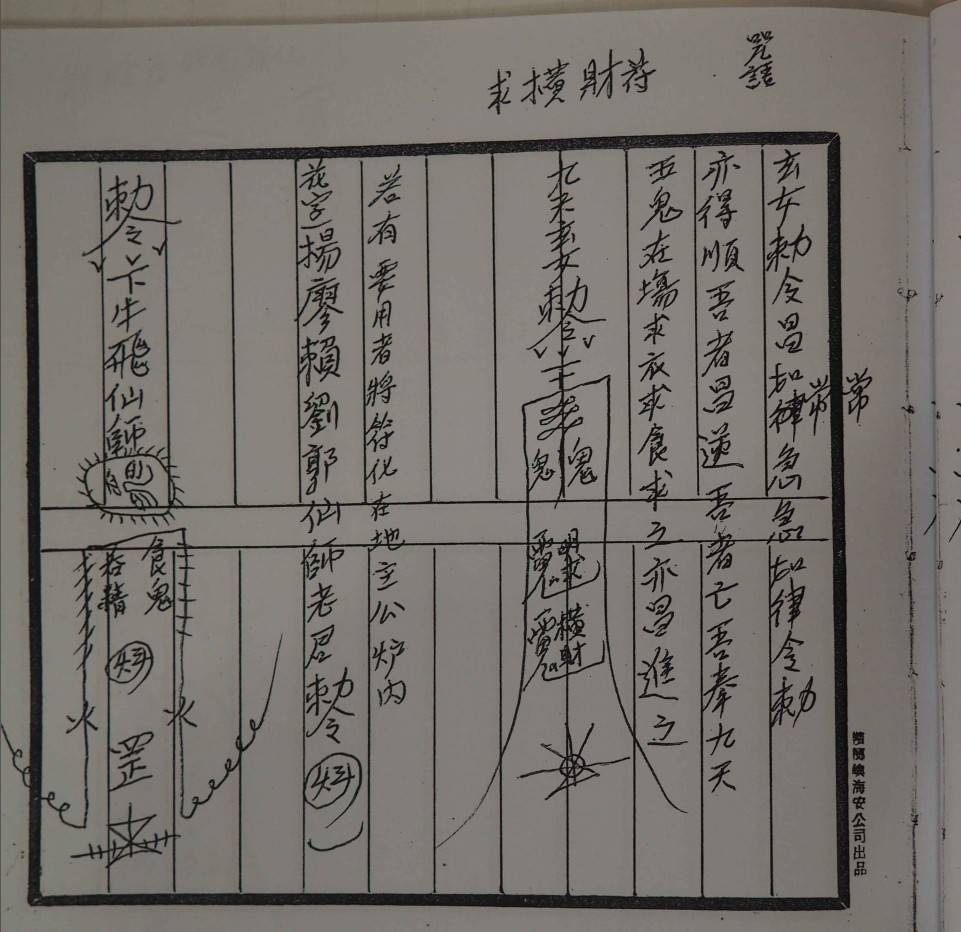 咒語
求橫財符
玄女勅令昌如律急急如律令勅
常常
亦得順吾者昌逆吾者亡吾奉九天
五鬼在塲求衣求食求之亦昌進之
九天玄女勅令
鬼鬼
明求橫財
若有要用者將符化在地主公炉内
花字楊廖賴劉郭仙師老君勅令
勅令
牛飛仙師
食鬼
吞精
罡
海安公司出品